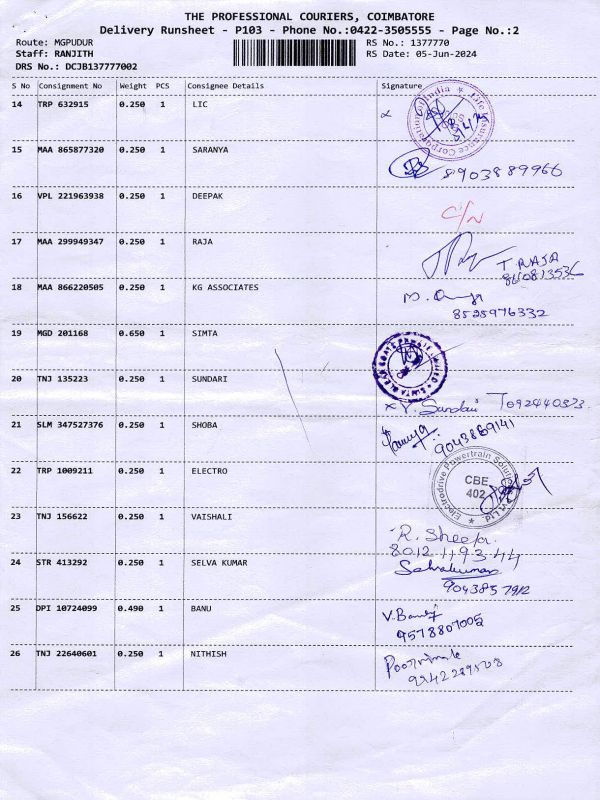 THE PROFESSIONAL COURIERS, COIMBATORE
Delivery Runsheet - P103 - Phone No.:0422-3505555 - Page No.:2
Route: MGPUDUR RS No.: 1377770
Staff: RANJITH RS Date: 05-Jun-2024
DRS No.: DCJB137777002
S No Consignment No Weight PCS Consignee Details Signature
14 TRP 632915 0.250 1 LIC
15 MAA 865877320 0.250 1 SARANYA
8903889966
16 VPL 221963938 0.250 1 DEEPAK
C/N
17 MAA 299949347 0.250 1 RAJA
T. RAJA
860813536
18 MAA 866220505 0.250 1 KG ASSOCIATES
8525976332
19 MGD 201168 0.650 1 SIMTA
20 TNJ 135223 0.250 1 SUNDARI
V. Sundari
21 SLM 347527376 0.250 1 SHOBA
9043869141
22 TRP 1009211 0.250 1 ELECTRO
Electrodrive Powertrain Solutions Pvt Ltd
CBE
402
23 TNJ 156622 0.250 1 VAISHALI
R. Sheela
8012119344
24 STR 413292 0.250 1 SELVA KUMAR
Selvakumar
904385 7912
25 DPI 10724099 0.490 1 BANU
V. Banu
9578807005
26 TNJ 22640601 0.250 1 NITHISH